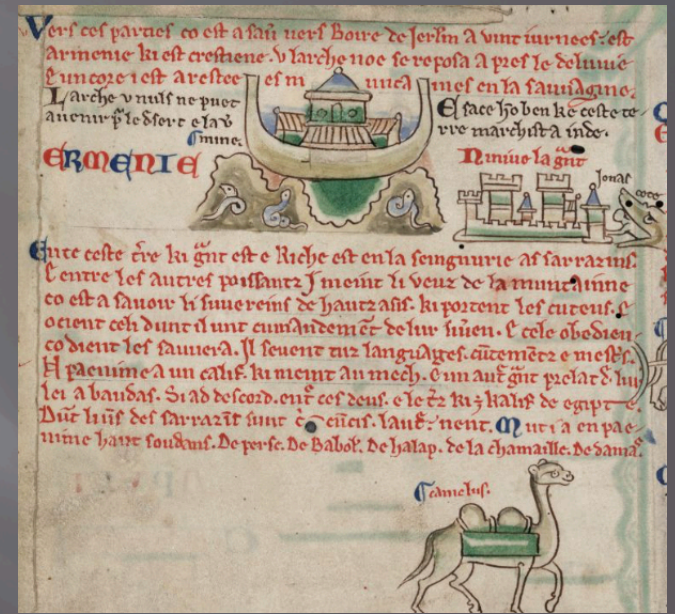 Vers ces parties co est a sau͛ uers Boire de Jerlm a vint iurnees. est
armenie ki est crestiene. v larche noe se reposa a pres le deluuie
E uncore i est arestee es m unta ines en la sauuagine.
Larche v nuls ne puet
auenir pͬ le desert e la v͛
mine.
E sace hoben ke ceste te
rre marchist a inde.
ERMENIE
Niniue la gͣnt
Jonas
cete
Tute ceste tͤre ki gͣnt est e Riche est en la seingnurie as sarrazins.
E entre les autres poissantz J meint li veuz de la muntainne
co est a sauoir li suuereins de hautz asis. ki portent les cuteus. E
ocient celi dunt il unt cumandemēt de lur suuen. E cele obedien
ce dient les sauuera. Il seuent tuz languages.
N paenime a un calif. ki meint au mech. e un autͤ gͣnt prelat d lur
lei a baudas. Si ad descord. entͤ ces deus. e le tͤrz ki est Kalif de egipte e
Dut liuͤs des sarrazīs sunt
nent. Mut i a en pae
nime hauz soudans. De perse. De Babol'. De halap. de la chamaille. De damaͣ.
camelus.